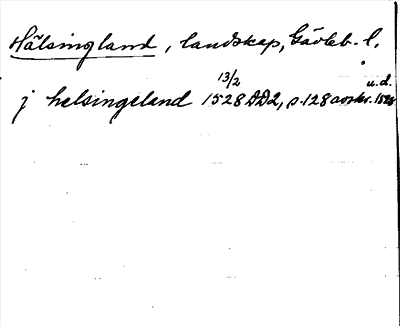 Hälsingland, landskap, Gävleb. l.
j helsingeland 13/2 1528 DD2, s. 128 avskr. u.d.